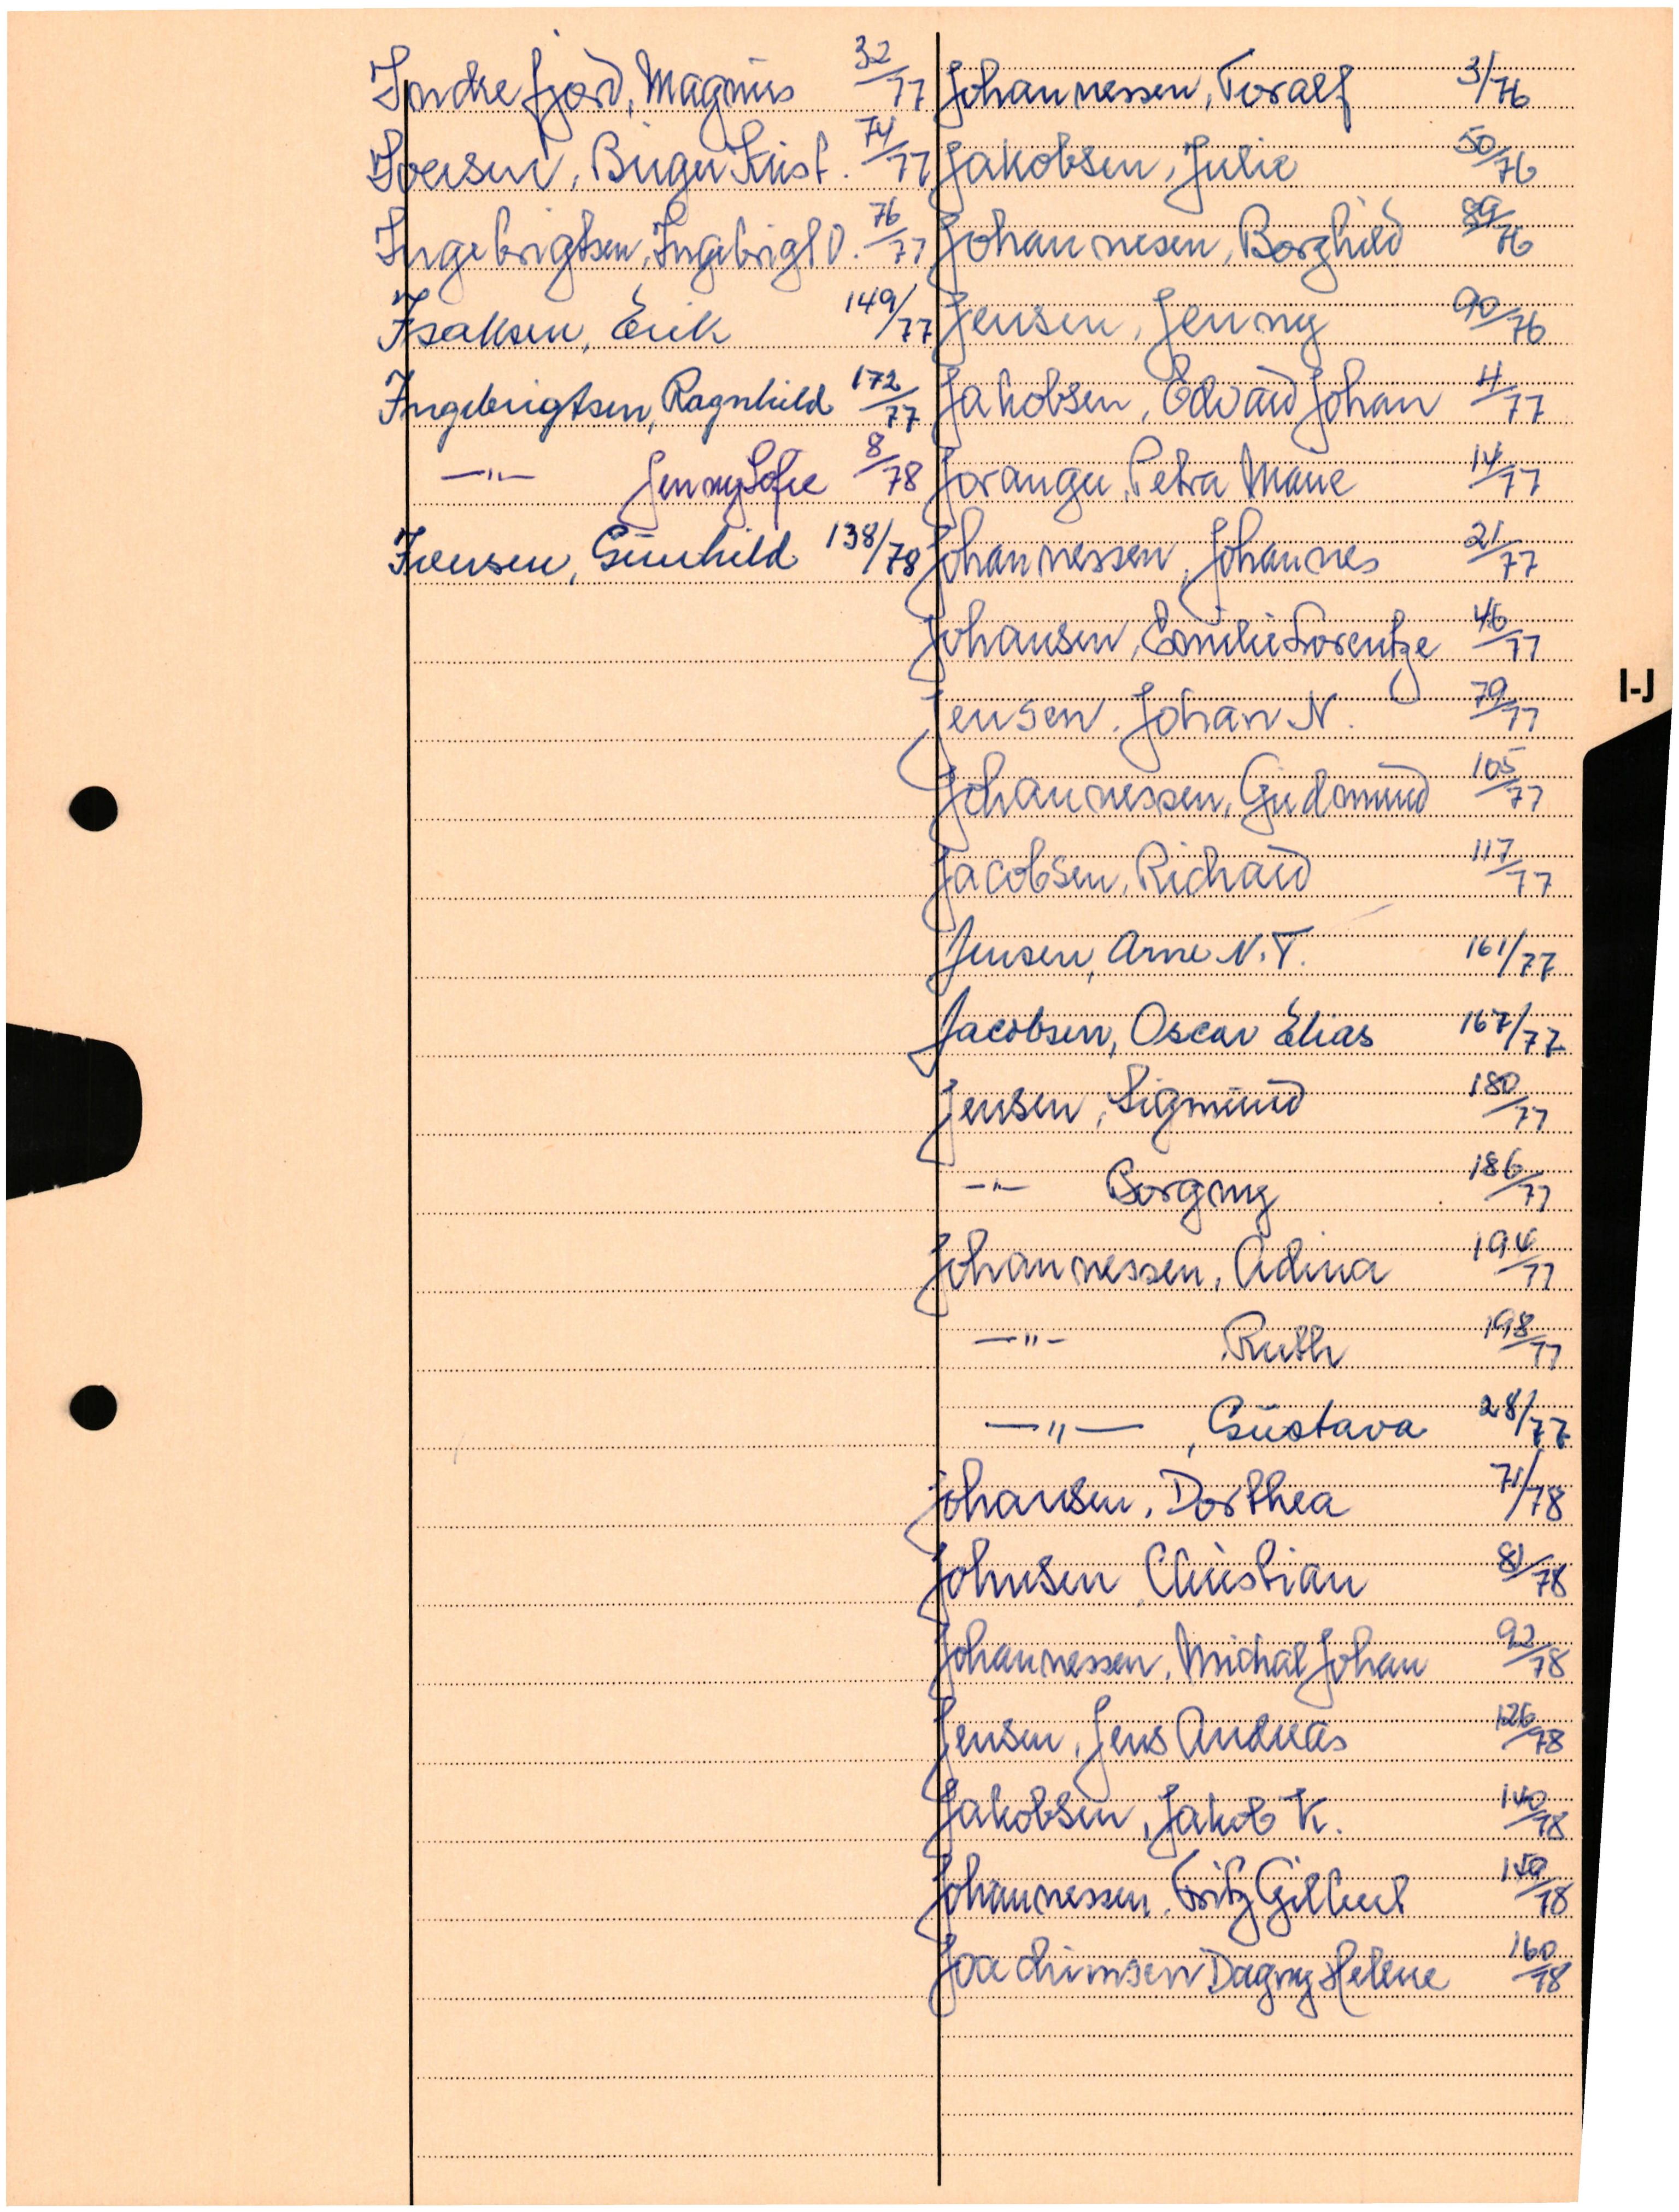 Indrefjord, Magnus 32/77
Iversen, Birger Krist. 74/77
Ingebrigtsen, Ingebrigt O. 76/77
Isaksen, Erik 149/77
Ingebrigtsen, Ragnhild 172/77
—"— Jenny Sofie 8/78
Iversen, Gunhild 138/78
Johannessen, Toralf 3/76
Jakobsen, Julie 50/76
Johannesen, Borghild 89/76
Jensen, Jenny 90/76
Jakobsen, Edvard Johan 4/77
Joranger, Petra Marie 14/77
Johannessen, Johannes 21/77
Johansen, Emilie Lorentze 46/77
Jensen, Johan N. 79/77
Johannessen, Gudmund 105/77
Jacobsen, Richard 117/77
Jensen, Arne N.T. 161/77
Jacobsen, Oscar Elias 167/77
Jensen, Sigmund 180/77
—"— Borgny 186/77
Johannessen, Adina 194/77
—"— Ruth 198/77
—"—, Gustava 28/77
Johansen, Dorthea 71/78
Johnsen, Christian 81/78
Johannessen, Michal Johan 92/78
Jensen, Jens Andreas 126/78
Jakobsen, Jakob K. 140/78
Johannessen, Fritz Gilbert 159/78
Joachimsen Dagny Helene 160/78
I-J